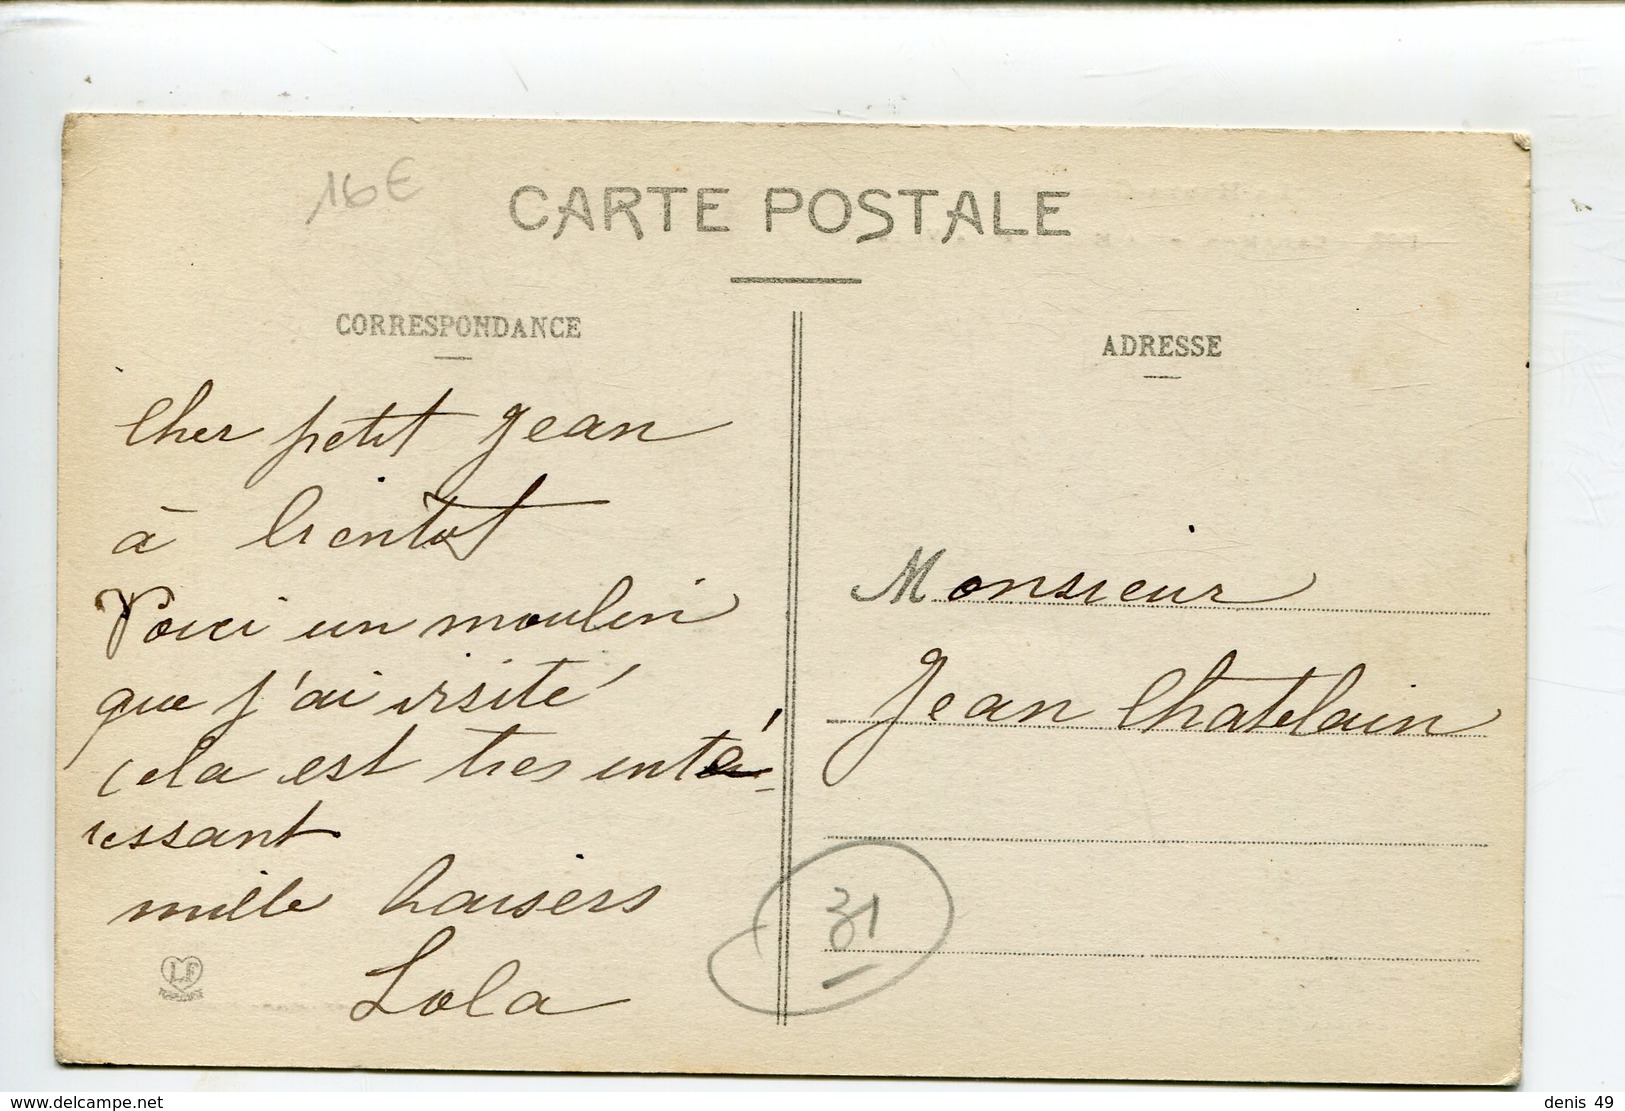 16€
CARTE POSTALE
CORRESPONDANCE
Cher petit Jean
à bientot
Voici un moulin
que j'ai visité
cela est tres inté-
ressant
mille baisers
Lola
LF
ADRESSE
Monsieur
Jean Chatelain
31
www.delcampe.net
denis 49